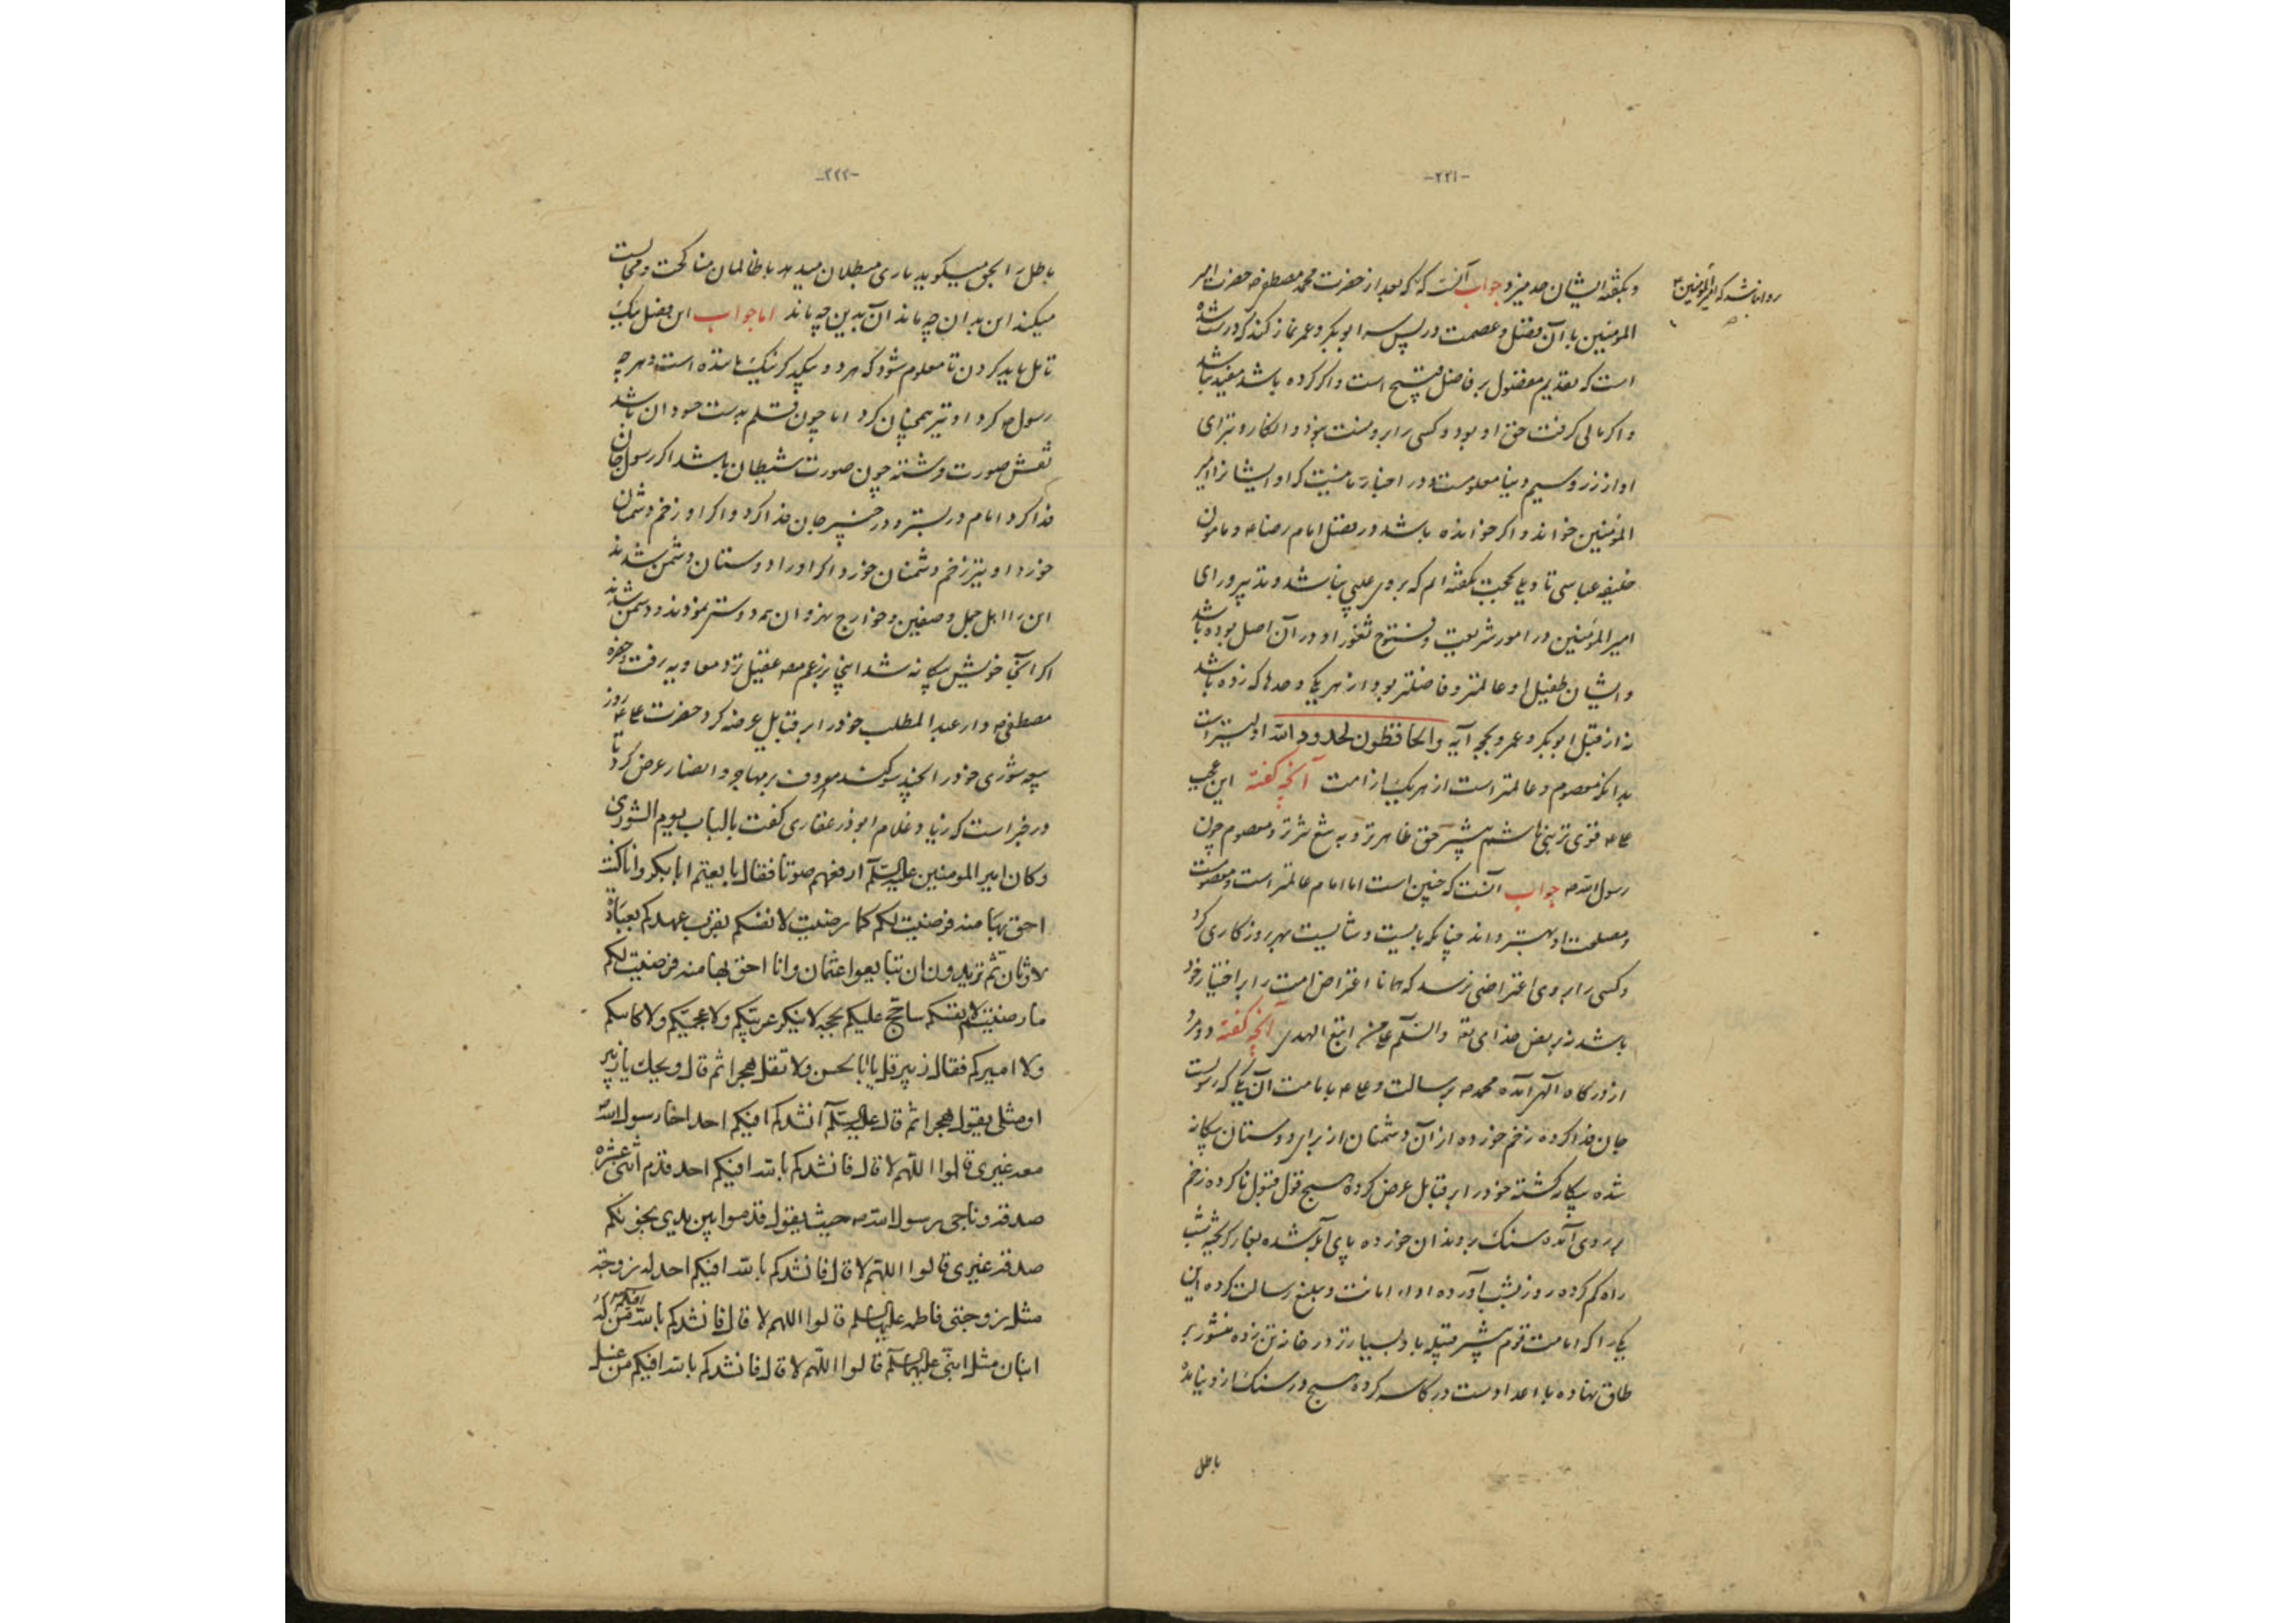 -۲۲۱-
و بگفته ایشان حد میزد جواب آنست که که بعد از حضرت محمد مصطفی ص حضرت امیر
المؤمنین با آن فضل و عصمت در پس سر ابوبکر و عمر نماز کند که درست شده
است که تقدیم مفضول بر فاضل قبیح است و اگر کرده باشد مفید نباشد
و اگر مالی گرفت حق او بود و کسی را برو منت نبود و انکار و تبرای
او از زر و سیم دنیا معلومست و در اخبار ما نیست که او ایشانرا امیر
المؤمنین خواند و اگر خوانده باشد در فضل امام رضا ع و مامون
خلیفه عباسی تاویل بحجت گفته ایم که بر وی عیبی نباشد و تدبیر و رای
امیر المؤمنین در امور شریعت و فتوح ثغور او در آن اصل بوده باشد
و ایشان طفیل او عالمتر و فاضلتر بود از هر یکی و حدها که زده باشد
نه از قبل ابوبکر و عمر و بحجه آیه والحافظون لحدود الله اولیتر است
بدانکه معصوم و عالمتر است از هر یک از امت آنچه گفته این عجب
علی ع قوی تر بنی هاشم بیشتر حق ظاهرتر و به تیغ تیزتر و معصوم چون
رسول الله ص جواب آنست که چنین است اما امام عالمتر است و معصومست
و مصلحت او بهتر داند چنانکه بایست و شایست بهر روزگاری کرد
و کسی را بر وی اعتراضی نرسد که همانا اعتراض امت را بر اختیار خود
باشد نه بر نص خدای تع والسلم علی من اتبع الهدی آنچه گفته دو مرد
از درگاه اله آمده محمد ص برسالت و علی ع بامامت آن یکی که رسولست
جان فدا کرده زخم خورده از آن دشمنان از برای دوستان بیگانه
شده بیگانه گشته خود را بر قبایل عرض کرده هیچ قول قبول ناکرده زخم
بر روی آمده سنگ بر دندان خورده پای آبله شده بغار گریخته شب
راه گم کرده روز بشب آورده اداء امانت و تبلیغ رسالت کرده این
یکی را که امامت قوم بیشتر قبیله باد بسیارتر در خانه تن زده منشور بر
طاق نهاده با اعدا دست در کاسه کرده هیچ در سنگ از دنیا نده
باطل
روا باشد که امیر المؤمنین ع
-۲۲۲-
باطل را بحق میگوید یاری مبطلان میدهد با ظالمان مناکحت و مجالست
میکند این بدان چه ماند آن بدین چه ماند اما جواب این فصل یک یک
تامل باید کردن تا معلوم شود که هر دو بیکدیگر نیک ماننده است و هر چه
رسول ص کرد او نیز همچنان کرد اما چون قلم بدست حسودان باشد
نقش صورت فرشته چون صورت شیطان باشد اگر رسول جان
فدا کرد امام در بستر و در خیبر جان فدا کرد و اگر او زخم دشمنان
خورد او نیز زخم دشمنان خورد اگر او را دوستان دشمن شدند
این را اهل جمل و صفین و خوارج نهروان همه دوستر نمودند و دشمن شدند
اگر آنجا خویش بیگانه شد اینجا بر زعم مصنف عقیل نزد معاویه رفت و حضرة
مصطفی ص در عبد المطلب خود را بر قبایل عرضه کرد حضرت علی ع روز
سوری خود را بچند سوگند معروف بر مهاجر و انصار عرض کرد تا
در خبر است که زیاد غلام ابوذر غفاری گفت بالباب یوم الشوری
وكان امير المومنين عليه السلم ارفعهم صوتا فقال بايعتم ابابكر وانا كنت
احق بها منه فرضيت لكم كما رضيت لانفسكم بقرب عهدكم بعبادة
لاوثان ثم تريدون ان تبايعوا عثمان وانا احق بها منه فرضيت لكم
ما رضيت لانفسكم ساحتج عليكم بحجة لا ينكر عربيكم ولا عجميكم ولا كاتبكم
ولا اميركم فقال زبير قل يا ابا الحسن ولا تقل هجرا ثم قال ويحك يا زبير
او مثلي يقول هجرا ثم قال عليه السلم انشدكم افيكم احد اخا رسول الله
معه غيري قالوا اللهم لا قال فانشدكم بالله افيكم احد قدم اثنى عشرة
صدقة وناجى رسول الله ص حيث يقول قدموا بين يدي نجويكم
صدقة غيري قالوا اللهم لا قال فانشدكم بالله افيكم احد له زوجة
مثل زوجتي فاطمه عليها السلم قالوا اللهم لا قال فانشدكم بالله من له
ابنان مثل ابني عليهما السلم قالوا اللهم لا قال فانشدكم بالله افيكم من غسل